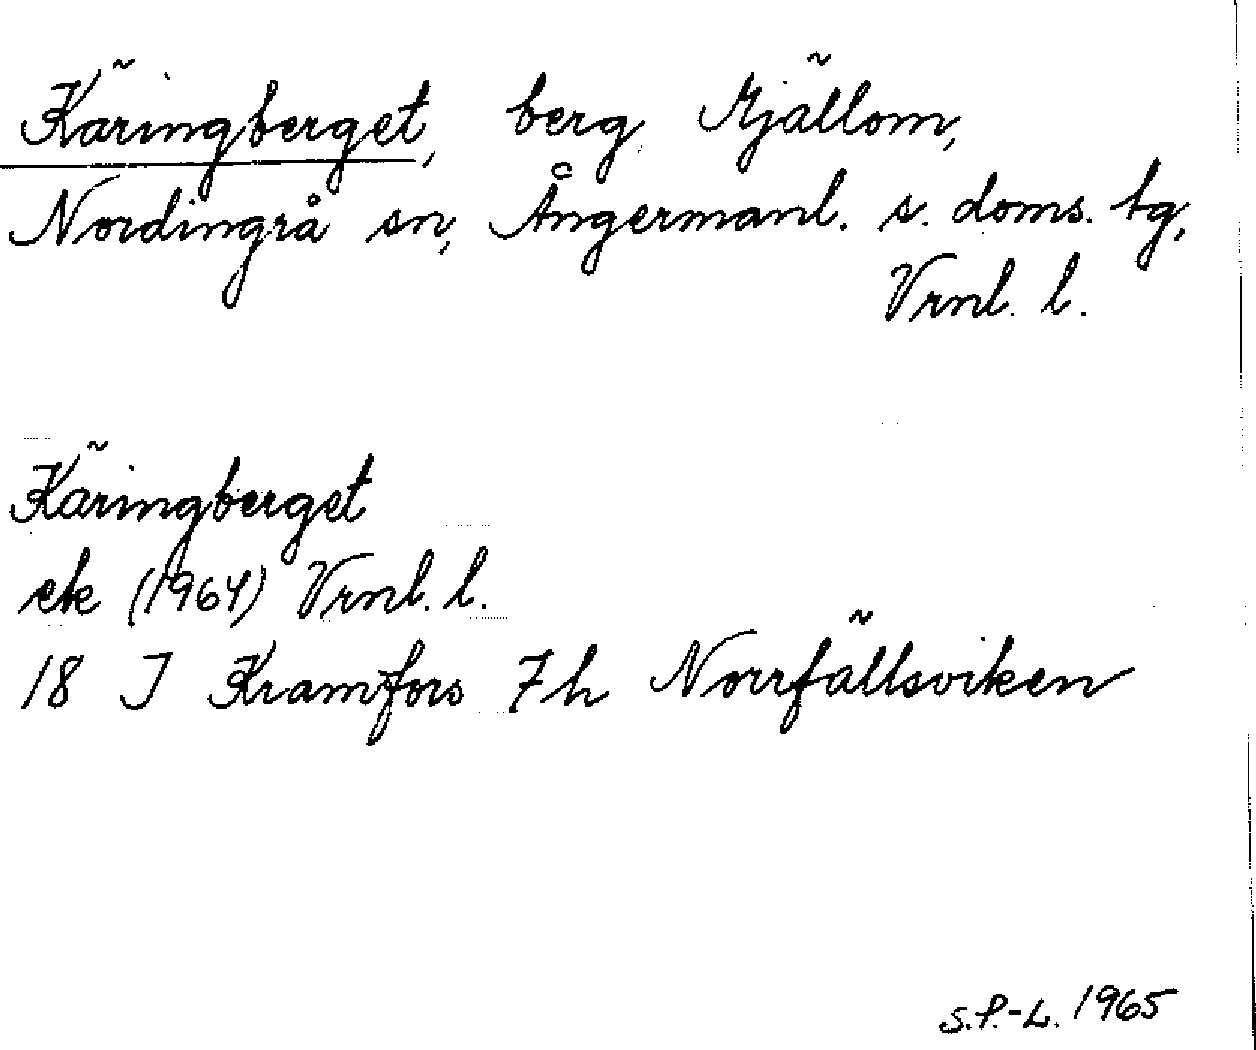 Käringberget, berg Mjällom,
Nordingrå sn, Ångermanl. s. doms. tg,
Vrnl. l.
Käringberget
ek (1964) Vrnl. l.
18 J Kramfors 7 h Norrfällsviken
S.P.-L. 1965